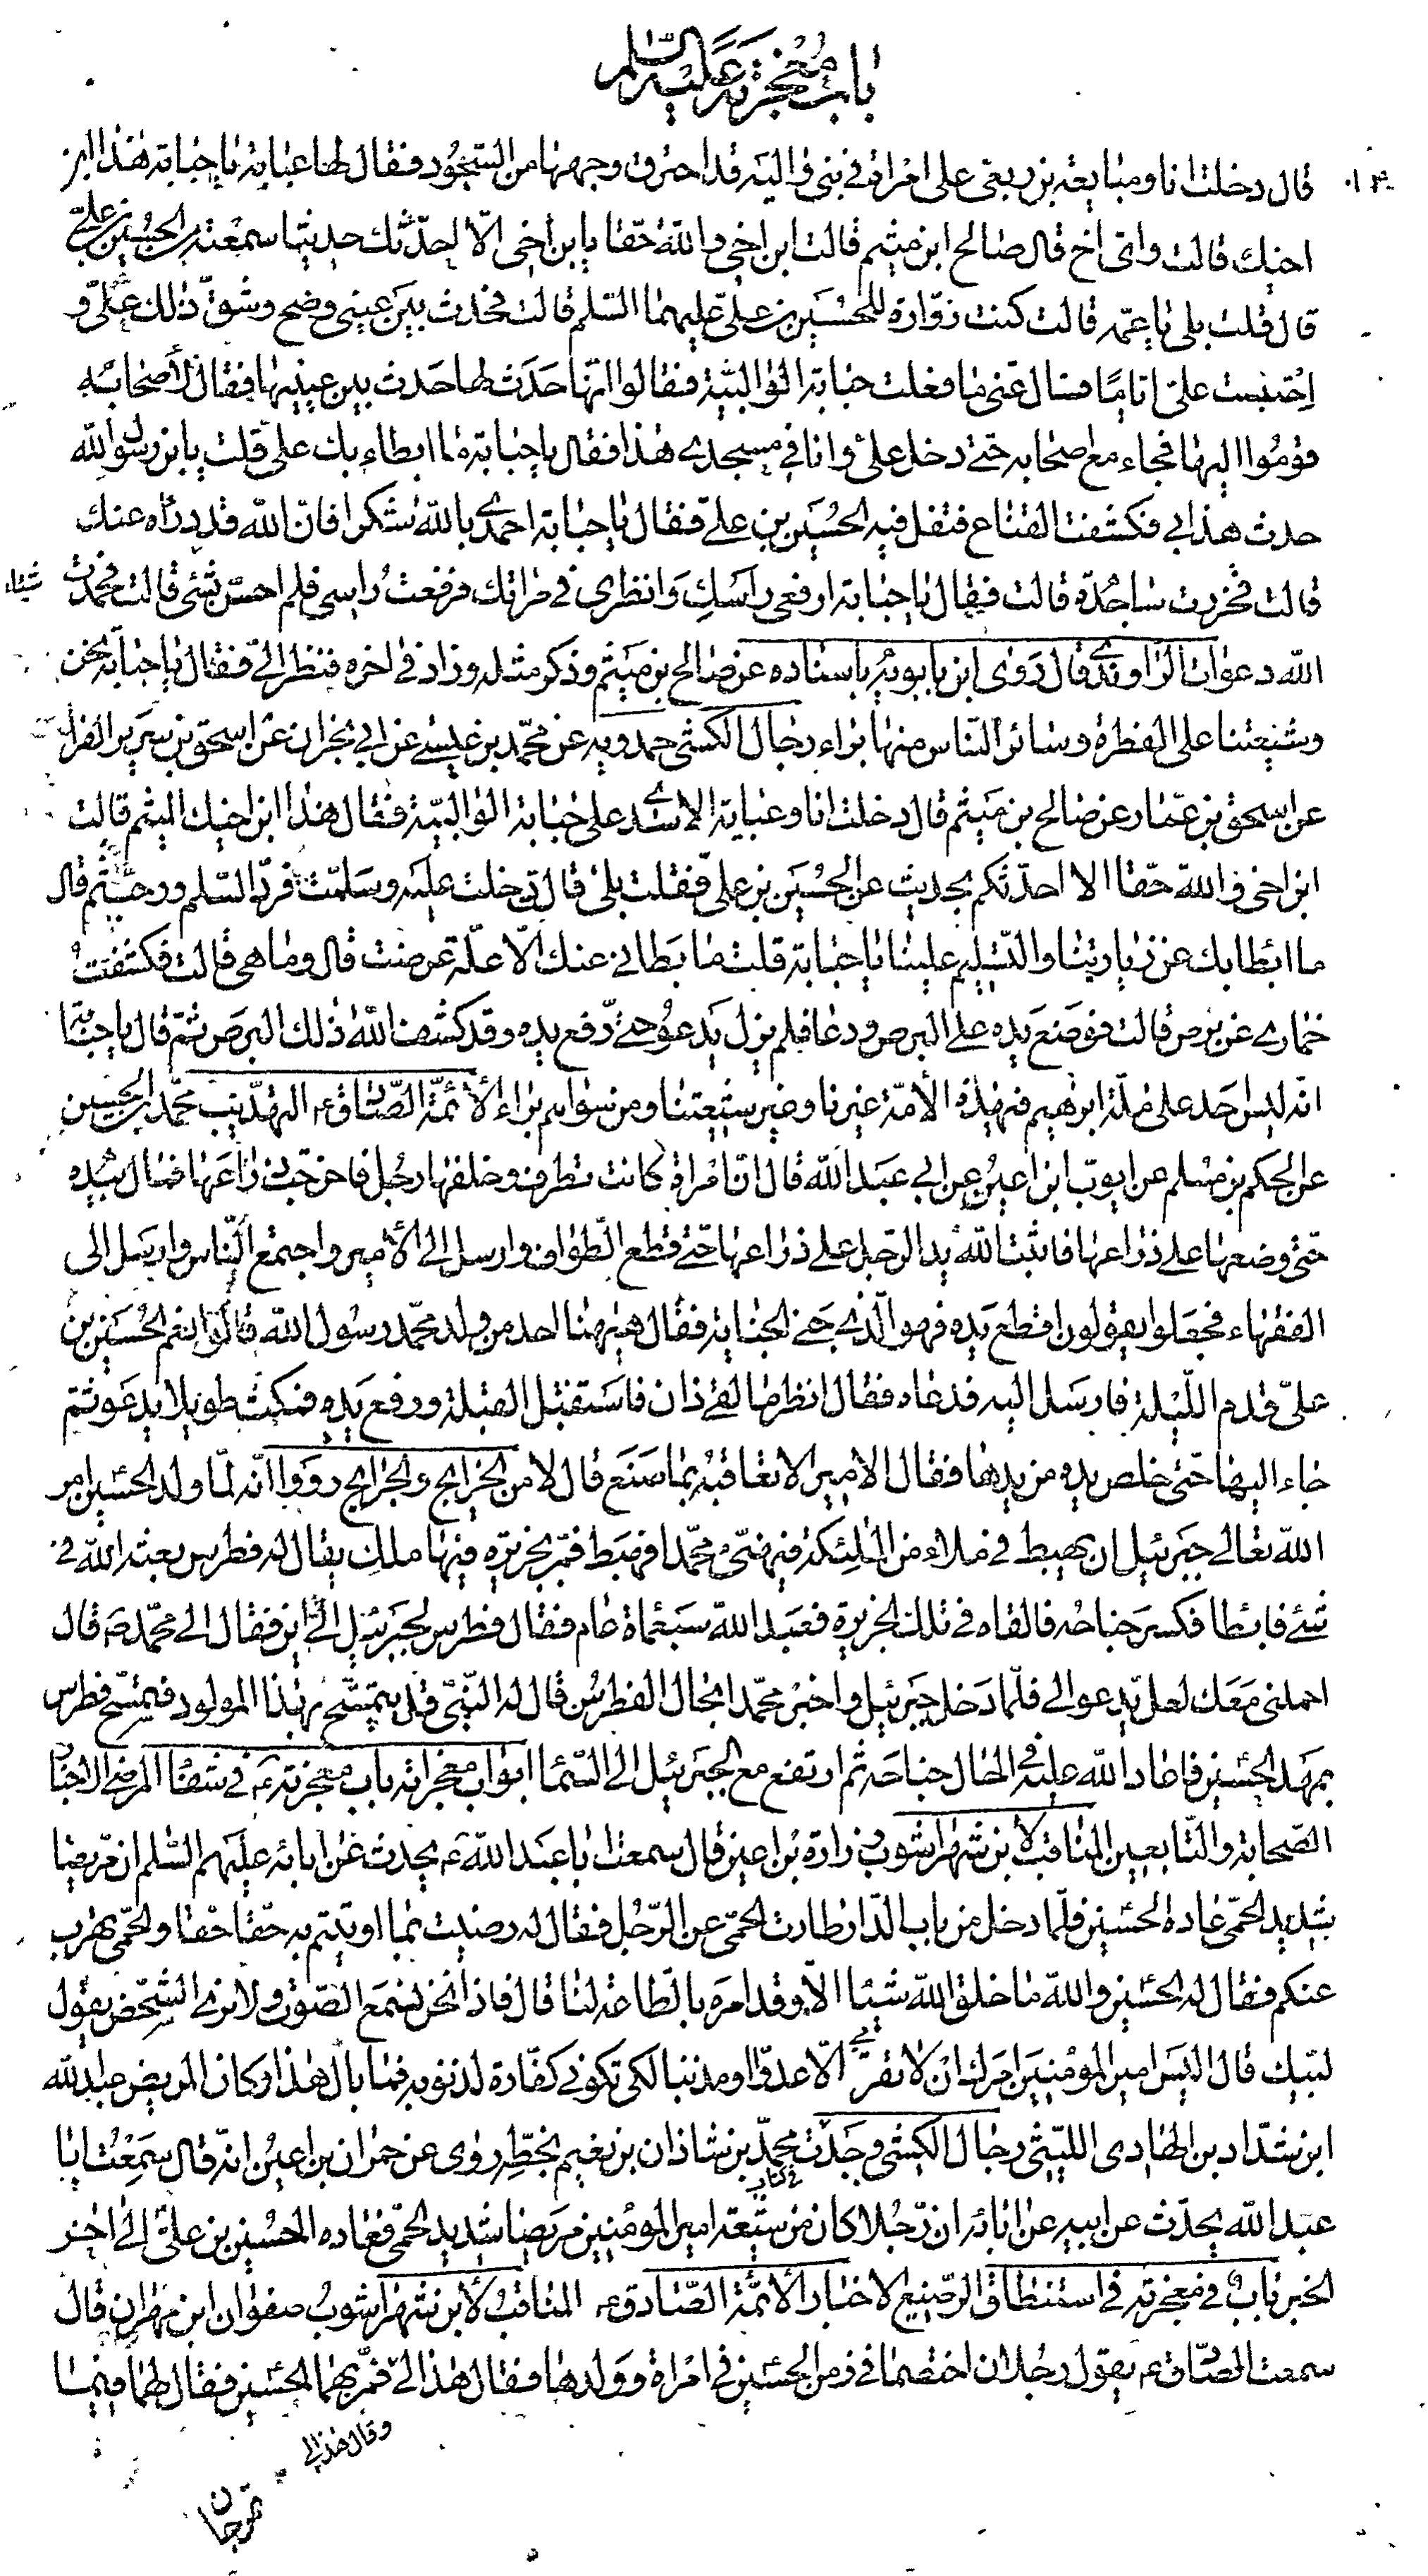 باب معجزته عليه السلم
قال دخلت انا ومبايعة بن ربعى على امراة فى بنى والية قد احترق وجهها من السجود فقال لها عباية يا حبابة هذا ابن
اخيك قالت واى اخ قال صالح ابن ميثم قالت ابن اخى والله حقا يا بن اخى الا احدثك حديثا سمعته من الحسين بن على
قال قلت بلى يا عمه قالت كنت زوارة للحسين بن على عليهما السلم قالت فحدث بين عينى وضح وشق ذلك على و
احتبست على اياما فسال عنى ما فعلت حبابة الوالبية فقالوا انها حدث لها حدث بين عينيها فقال لأصحابه
قوموا اليها فجاء مع اصحابه حتى دخل على وانا فى مسجدى هذا فقال يا حبابة ما ابطاء بك على قلت يا بن رسول الله
حدث هذا بى فكشفت القناع فتفل فيه الحسين بن على فقال يا حبابة احمدى بالله شكرا فان الله قد درأه عنك
قالت فخررت ساجدة قالت فيقال يا حبابة ارفعى راسك وانظرى فى مراتك فرفعت راسى فلم احس بشئ قالت فحمدت
شيئا
الله دعوات الراوندى قال روى ابن بابويه باسناده عن صالح بن ميثم وذكر مثله وزاد فى اخره فنظر الى فقال يا حبابة نحن
وشيعتنا على الفطرة وسائر الناس منها براء رجال الكشى حمدويه عن محمد بن عيسى عن ابى نجران عن اسحق بن سرير الفرا
عن اسحق بن عمار عن صالح بن ميثم قال دخلت انا وعباية الاسدى على حبابة الوالبية فقال هذا ابن اخيك الميثم قالت
ابن اخى والله حقا الا احدثكم بحديث عن الحسين بن على فقلت بلى قال دخلت عليه وسلمت فرد السلم ورحب ثم قال
ما ابطا بك عن زيارتنا والتسليم علينا يا حبابة قلت ما بطانى عنك الا علة عرضت قال وما هى قالت فكشفت
خمارى عن برص قالت فوضع يده على البرص ودعا فلم يزل يدعو حتى رفع يده وقد كشف الله ذلك البرص ثم قال يا حبابة
انه ليس احد على ملة ابرهيم فى هذه الأمة غيرنا وغير شيعتنا ومن سواهم براء الأئمة الصادق ع التهذيب محمد بن الحسين
عن الحكم بن مسلم عن ايوب ابن اعين عن ابى عبد الله قال ان امراة كانت تطوف وخلفها رجل فاخرجت ذراعها فمال بيده
حتى وضعها على ذراعها فاثبت الله يد الرجل على ذراعها حتى قطع الطواف وارسل الى الأمير واجتمع الناس وارسل الى
الفقهاء فجعلوا يقولون اقطع يده فهو الذى جنى الجناية فقال هيهنا احد من ولد محمد رسول الله قالوا نعم الحسين بن
على قدم الليلة فارسل اليه فدعاه فقال انظر ما لقى ذان فاستقبل القبلة ورفع يديه فمكث طويلا يدعو ثم
جاء اليها حتى خلص يده من يدها فقال الامير الا تعاقبه بما صنع قال لا من الخرايج والجرايح رووا انه لما ولد الحسين امر
الله تعالى جبرئيل ان يهبط فى ملاء من الملئكة فيهنى محمدا فهبط فمر بجزيرة فيها ملك يقال له فطرس بعثه الله فى
شئ فابطا فكسر جناحه فالقاه فى تلك الجزيرة فعبد الله سبعماة عام فقال فطرس لجبرئيل الى اين فقال الى محمد ص قال
احملنى معك لعل يدعو لى فلما دخل جبرئيل واخبر محمدا بحال الفطرس قال له النبى قل يتمسح بهذا المولود فتمسح فطرس
بمهد الحسين فاعاد الله عليه فى الحال جناحه ثم ارتفع مع الجبرئيل الى السما ابواب معجزاته باب معجزته ع فى شفا المرضى الاخبار
الصحابة والتابعين المناقب لابن شهراشوب زرارة بن اعين قال سمعت ابا عبد الله ع يحدث عن ابائه عليهم السلم ان مريضا
شديد الحمى عاده الحسين فلما دخل من باب الدار طارت الحمى عن الرجل فقال له رضيت بما اوتيتم به حقا حقا والحمى تهرب
عنكم فقال له الحسين والله ما خلق الله شيئا الا وقد امره بالطاعة لنا قال فاذا نحن نسمع الصوت ولا نرى الشخص يقول
لبيك قال اليس امير المؤمنين امرك ان لا تقربى الا عدوا او مذنبا لكى تكونى كفارة لذنوبه فما بال هذا وكان المريض عبد الله
ابن شداد بن الهادى الليثى رجال الكشى وجدت محمد بن شاذان بن نعيم بخطه روى عن حمران بن اعين انه قال سمعت ابا
فى كتاب
عبد الله يحدث عن ابيه عن ابائه ان رجلا كان من شيعة امير المؤمنين مريضا شديد الحمى فعاده الحسين بن على الى اخر
الخبر باب فى معجزته فى استنطاق الرضيع الاخبار الأئمة الصادق ع المناقب لأبن شهراشوب صفوان ابن مهران قال
سمعت الصادق ع يقول رجلان اختصما فى زمن الحسين فى امراة وولدها فقال هذا لى فمر بهما الحسين فقال لهما فيما
وقال هذا لى
تمرجان